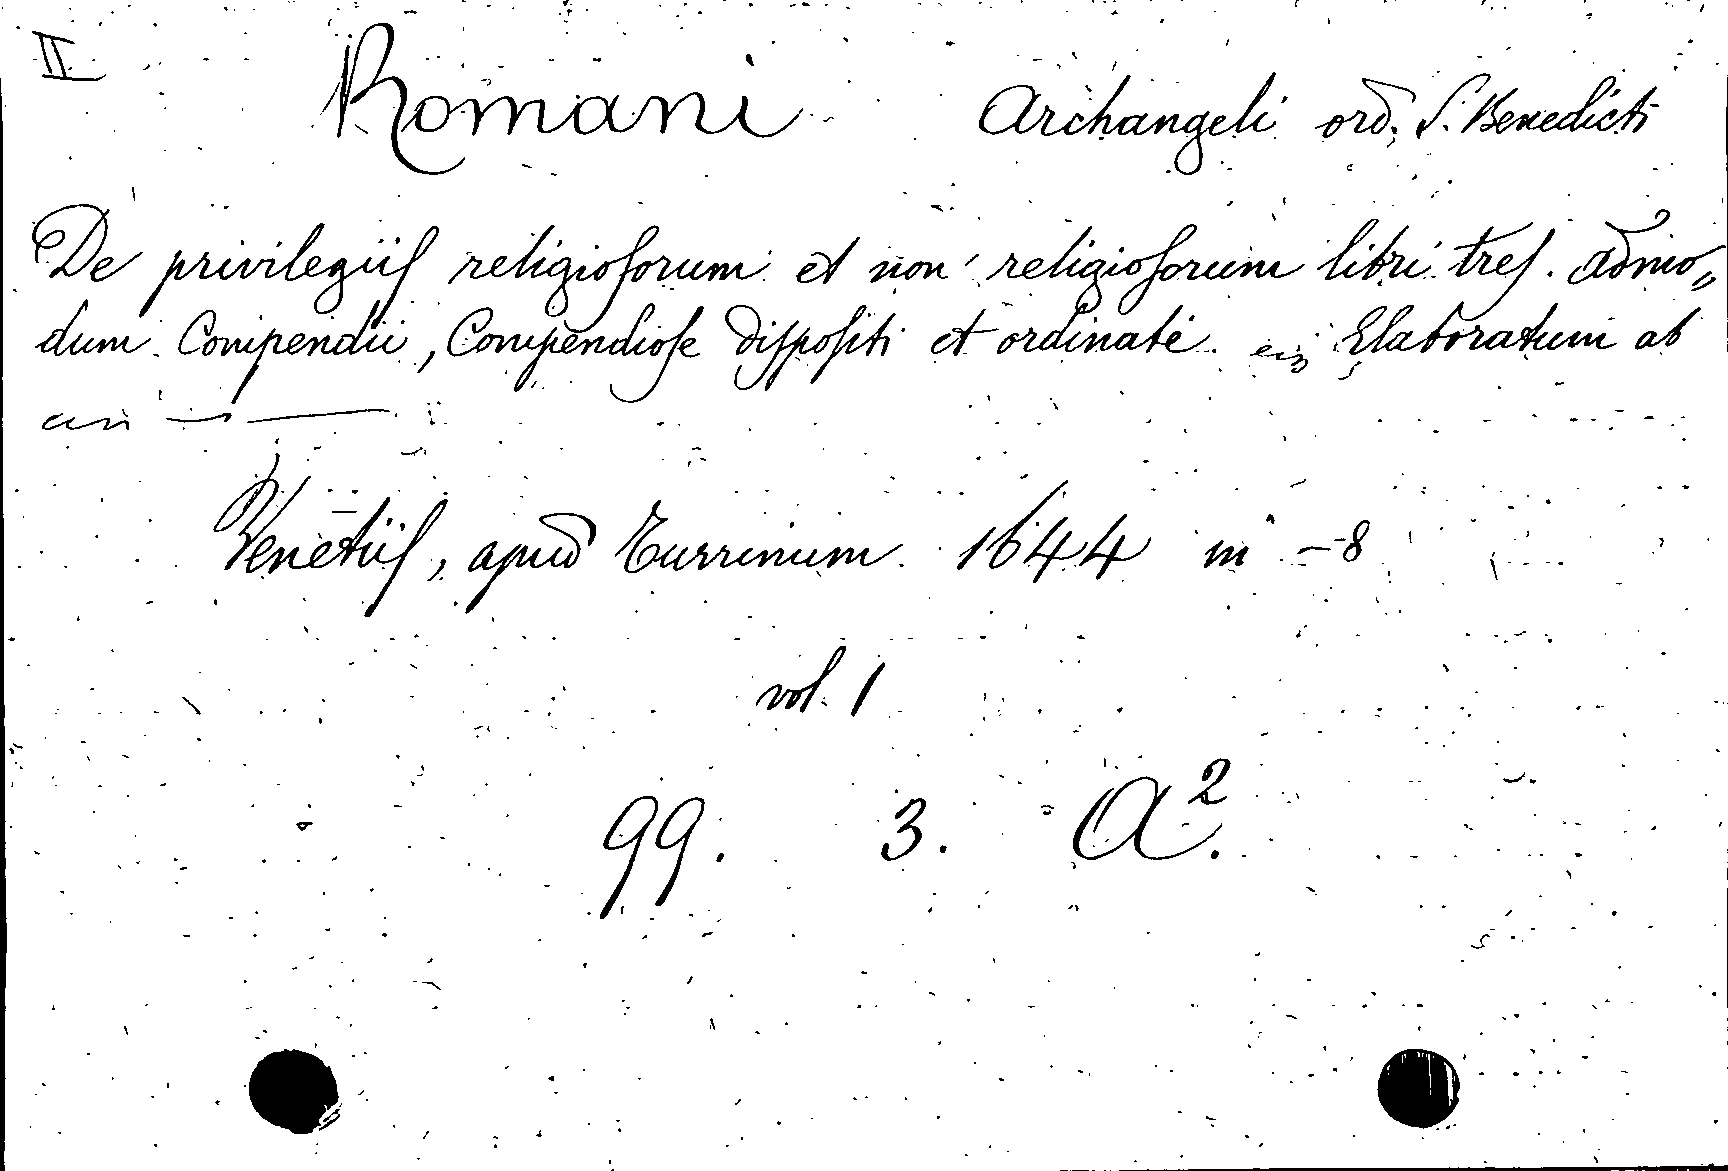 II
Romani Archangeli ord. S. Benedicti
De privilegiis religiosorum et non religiosorum libri tres. admo„
dum Compendii, Compendiose dispositi et ordinate. Elaboratum ab
Venetiis, apud Turrinum. 1644 in -8
vol. 1
99. 3. A².